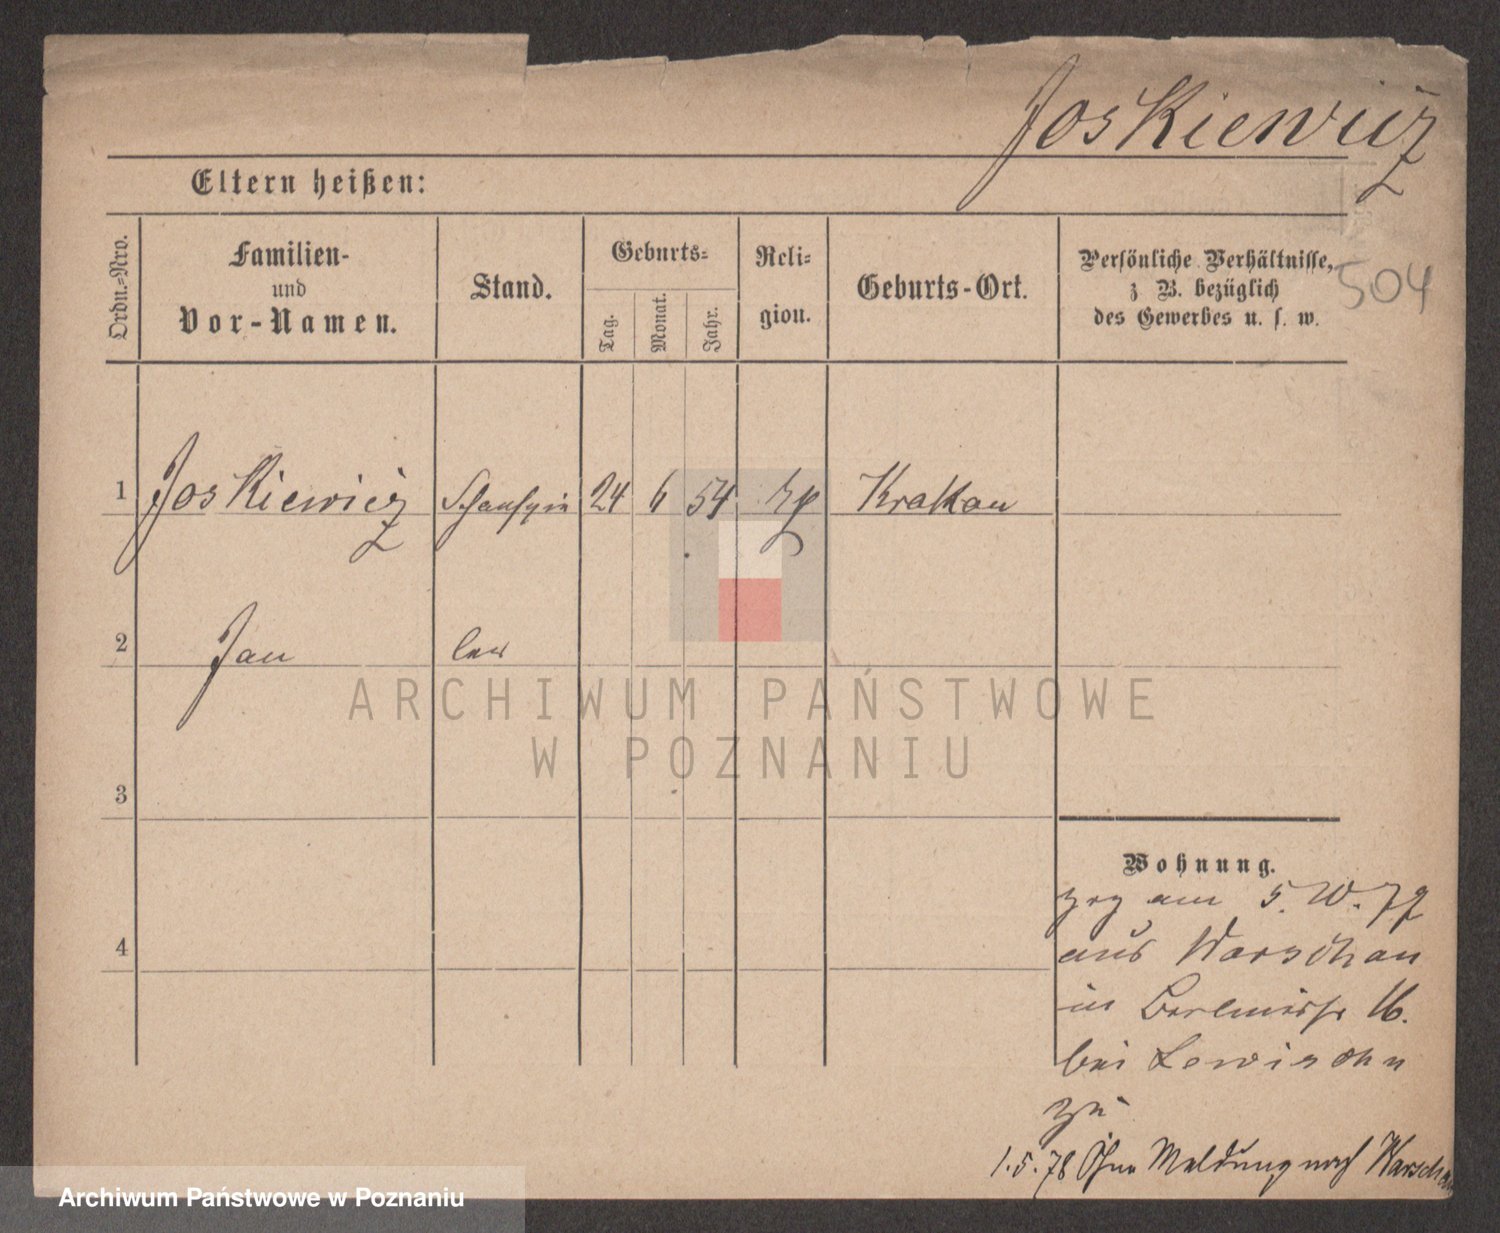 Joskiewicz
Eltern heißen:
Ordn.-Nro.
Familien-
und
Vor-Namen.
Stand.
Geburts-
Tag.
Monat.
Jahr.
Reli-
gion.
Geburts-Ort.
Persönliche Verhältnisse,
z B. bezüglich
des Gewerbes u. s. w.
504
1 Joskiewicz 24 6 54 Krakau
2 Jan ler
3
Wohnung.
zog am 5. 77
aus Warschau
4
in 16.
bei Lewisohn
zu
1.5.78 Ohne Meldung nach Warschau
ARCHIWUM PAŃSTWOWE
W POZNANIU
Archiwum Państwowe w Poznaniu